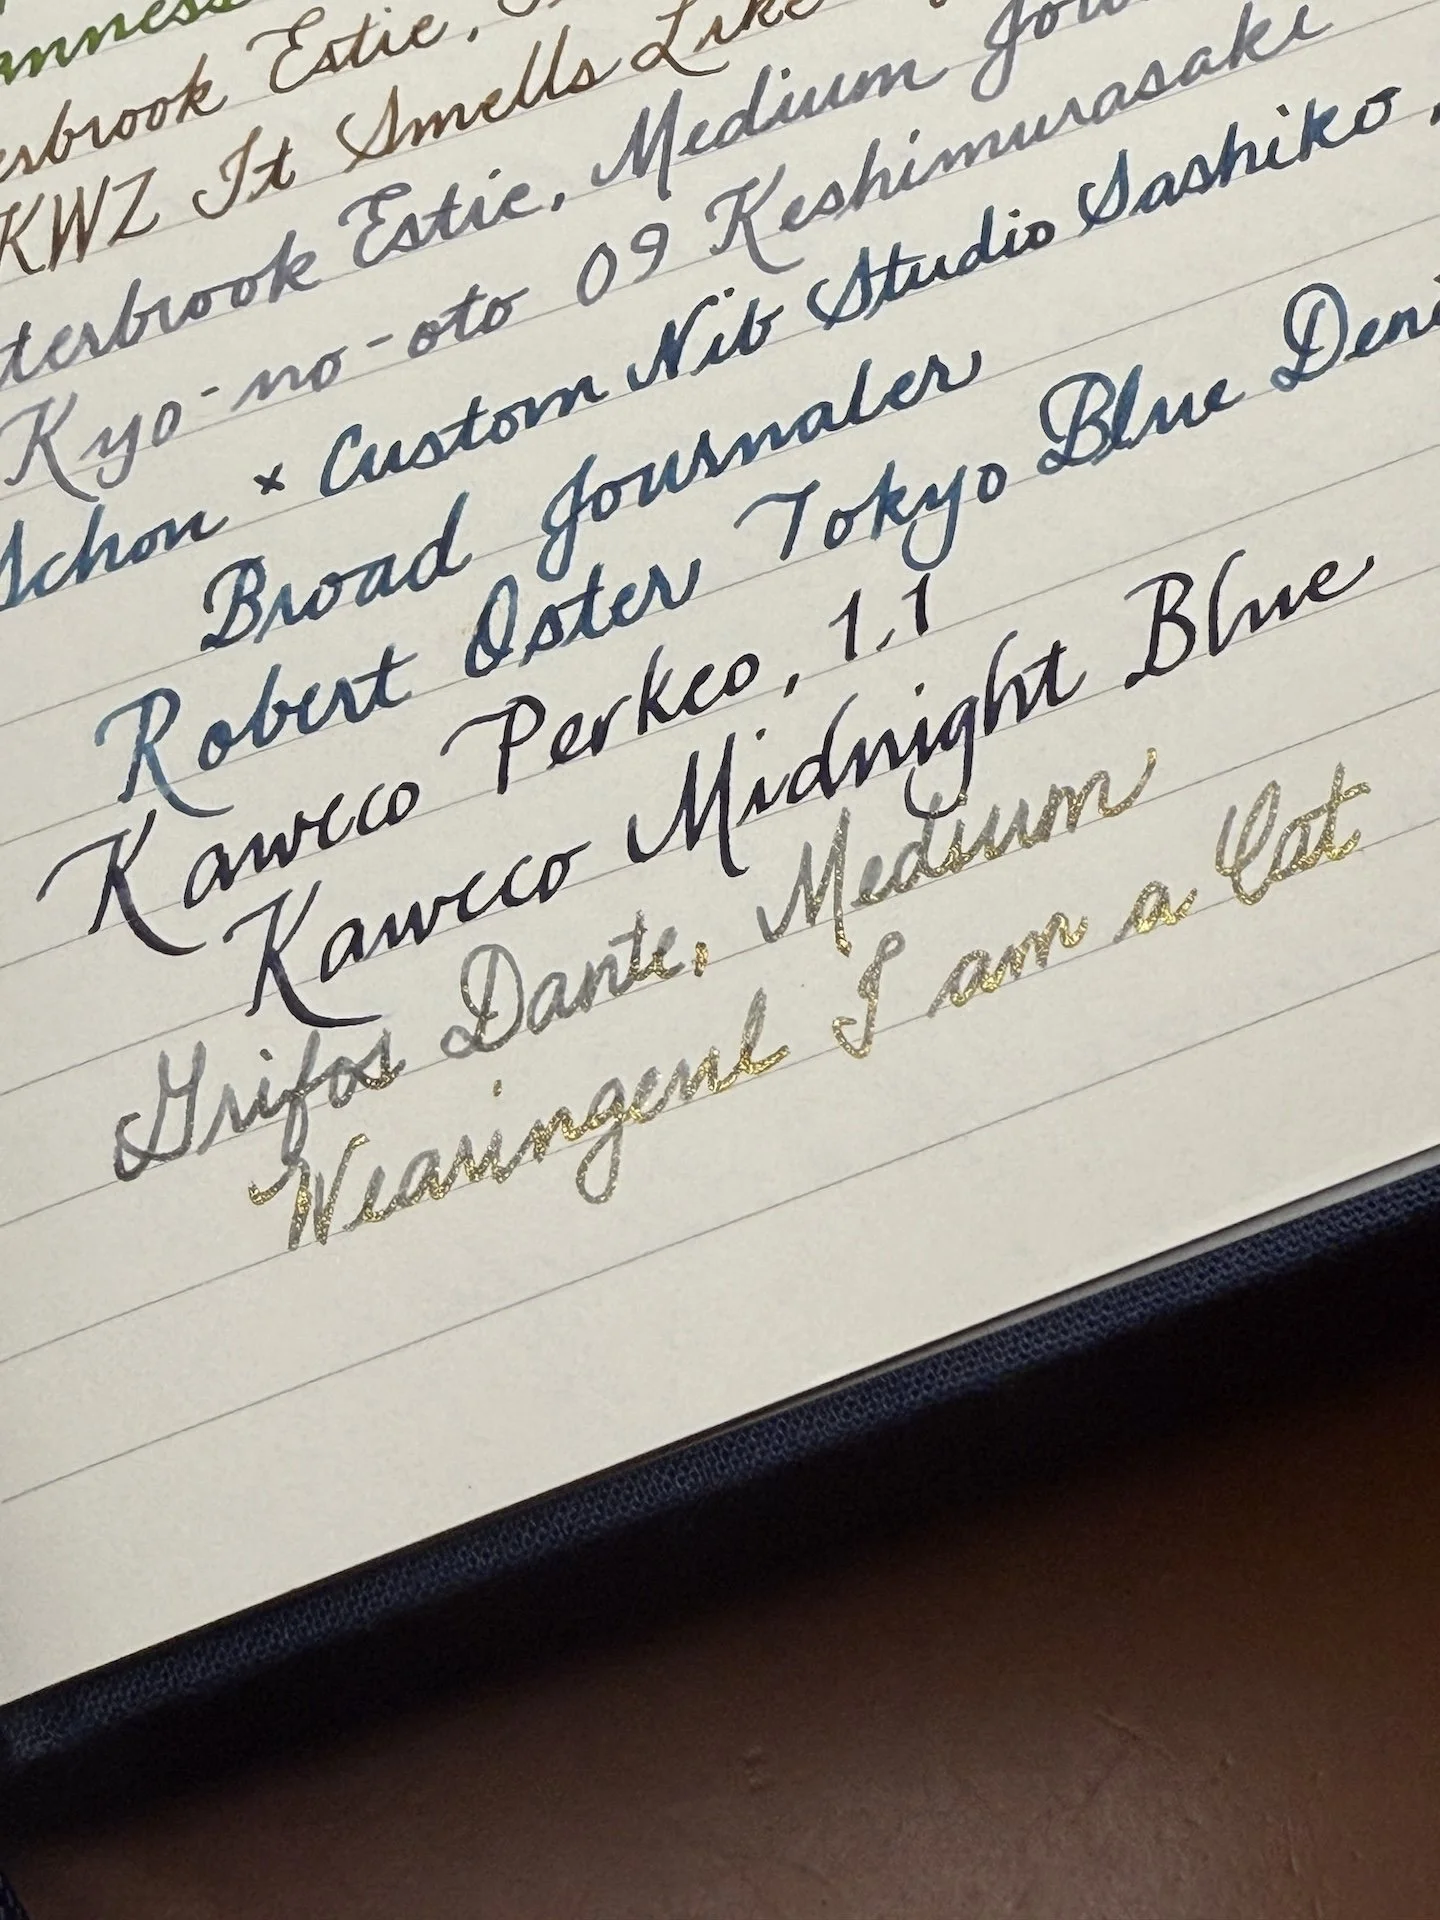 Estie,
KWZ It Smells Like
Estie, Medium
Kyo-no-oto 09 Keshimurasaki
Schon x Custom Nib Studio Sashiko,
Broad Journaler
Robert Oster Tokyo Blue
Kaweco Perkeo, 1.1
Kaweco Midnight Blue
Grifos Dante, Medium
Wearingeul I am a Cat